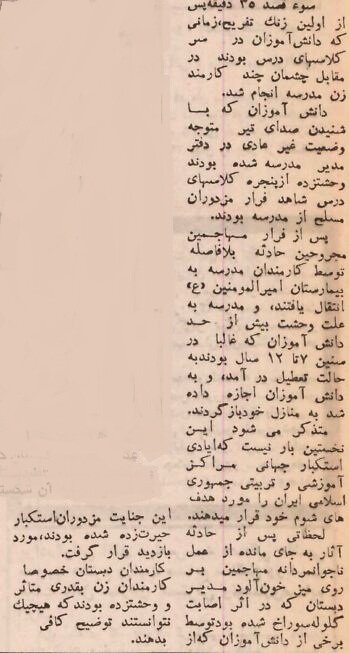 سوء قصد ۳۵ دقیقه‌پس
از اولین زنگ تفریح،زمانی
که دانش‌آموزان در سر
کلاسهای درس بودند در
مقابل چشمان چند کارمند
زن مدرسه انجام شد.
دانش آموزان که بــا
شنیدن صدای تیر متوجه
وضعیت غیر عادی در دفتر
مدیر مدرسه شده بودند
وحشتزده ازپنجره کلاسهای
درس شاهد فرار مزدوران
مسلح از مدرسه بودند.
پس از فرار مهـاجمین
مجروحین حادثه بلافاصله
توسط کارمندان مدرسه به
بیمارستان امیرالمومنین «ع»
انتقال یافتند، و مدرسه به
علت وحشت بیش از حــد
دانش آموزان که غالبا در
سنین ۷تا ۱۲ سال بودندبه
حالت تعطیل در آمد، و به
دانش آموزان اجازه داده
شد به منازل خودبازگردند.
متذکر می شود ایــن
نخستین بار نیست که‌ایادی
استکبار جهانی مــراکــز
آموزشی و تربیتی جمهوری
اسلامی ایران را مورد هدف
های شوم خود قرار میدهند.
لحظاتی پس از حادثه
آثار به جای مانده از عمل
ناجوانمردانه مهاجمین بــر
روی میز خون‌آلود مــدیـر
دبستان که در اثر اصابت
گلوله‌سوراخ شده بودتوسط
برخی از دانش‌آموزان که‌از
این جنایت مزدوران‌استکبار
حیرت‌زده شده بودند،مورد
بازدید قرار گرفت.
کارمندان دبستان خصوصا
کارمندان زن بقدری متاثر
و وحشتزده بودندکه هیچیك
نتوانستند توضیح کافی
بدهند.